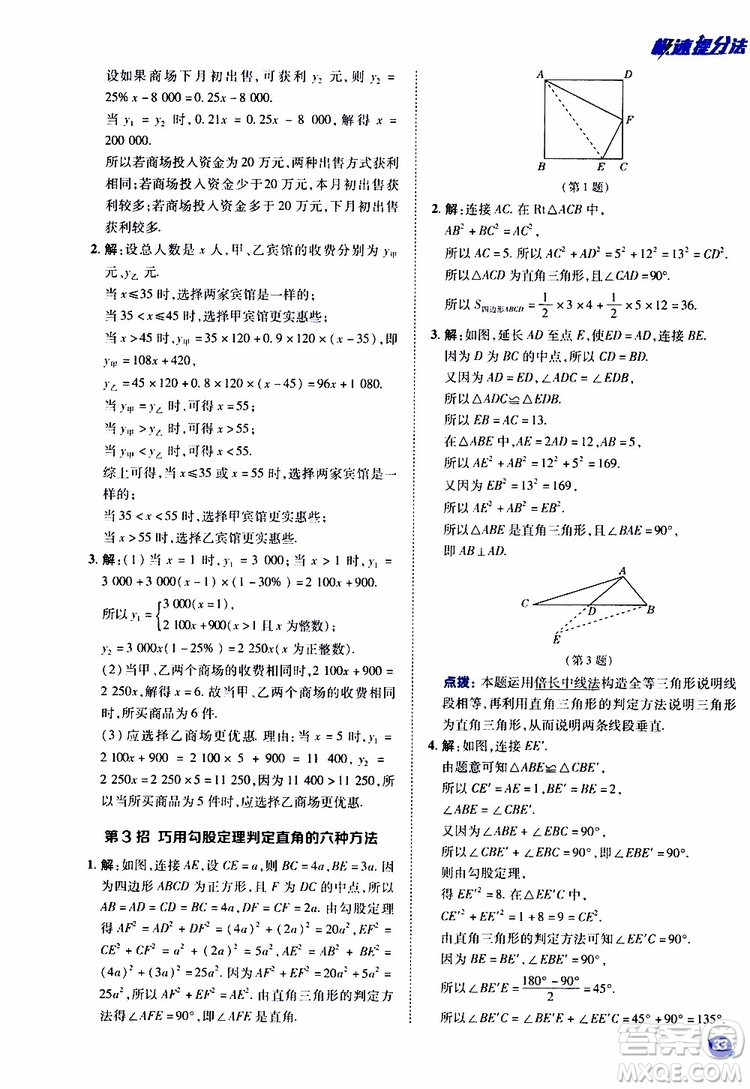 极速提分法
设如果商场下月初出售,可获利 y₂ 元,y₂ =
25% x - 8 000 = 0. 25x - 8 000.
当 y₁ = y₂ 时,0. 21x = 0. 25x - 8 000,解得 x =
200 000.
所以若商场投入资金为 20 万元,两种出售方式获利
相同;若商场投入资金少于 20 万元,本月初出售获
利较多;若商场投入资金多于 20 万元,下月初出售
获利较多.
2. 解:设总人数是 x 人,甲、乙宾馆的收费分别为 y甲
元、y乙 元.
当 x≤35 时,选择两家宾馆是一样的;
当 35 < x≤45 时,选择甲宾馆更实惠些;
当 x > 45 时,y甲 = 35 × 120 + 0. 9 × 120(x - 35),即
y甲 = 108x + 420,
y乙 = 45 × 120 + 0. 8 × 120(x - 45) = 96x + 1 080.
当 y甲 = y乙 时,可得 x = 55;
当 y甲 > y乙 时,可得 x > 55;
当 y甲 < y乙 时,可得 x < 55.
综上可得,当 x≤35 或 x = 55 时,选择两家宾馆是一
样的;
当 35 < x < 55 时,选择甲宾馆更实惠些;
当 x > 55 时,选择乙宾馆更实惠些.
3. 解:(1)当 x = 1 时,y₁ = 3 000;当 x > 1 时,y₁ =
3 000 + 3 000(x - 1)(1 - 30%) = 2 100x + 900.
所以 y₁ = { 3 000(x = 1),
2 100x + 900(x > 1 且 x 为整数);
y₂ = 3 000x(1 - 25%) = 2 250x(x 为正整数).
(2)当甲、乙两个商场的收费相同时,2 100x + 900 =
2 250x,解得 x = 6. 故当甲、乙两个商场的收费相同
时,所买商品为 6 件.
(3)应选择乙商场更优惠. 理由:当 x = 5 时,y₁ =
2 100x + 900 = 2 100 × 5 + 900 = 11 400,y₂ =
2 250x = 2 250 × 5 = 11 250. 因为 11 400 > 11 250,所以
当所买商品为 5 件时,应选择乙商场更优惠.
第 3 招 巧用勾股定理判定直角的六种方法
1. 解:如图,连接 AE,设 CE = a,则 BC = 4a,BE = 3a. 因
为四边形 ABCD 为正方形,F 为 DC 的中点,所以
AB = AD = CD = BC = 4a,DF = CF = 2a. 由勾股定理
得 AF² = AD² + DF² = (4a)² + (2a)² = 20a²,EF² =
CE² + CF² = a² + (2a)² = 5a²,AE² = AB² + BE² =
(4a)² + (3a)² = 25a². 因为 20a² + 5a² = 25a²,所以
AF² + EF² = AE². 由直角三角形的判定方
法得 ∠AFE = 90°,即∠AFE 是直角.
A D
F
B E C
(第 1 题)
2. 解:连接 AC. 在 Rt△ACB 中,
AB² + BC² = AC²,
所以 AC = 5. 所以 AC² + AD² = 5² + 12² = 13² = CD².
所以△ACD 为直角三角形,且∠CAD = 90°.
所以 S四边形ABCD = 1/2 × 3 × 4 + 1/2 × 5 × 12 = 36.
3. 解:如图,延长 AD 至点 E,使 ED = AD,连接 BE.
因为 D 为 BC 的中点,所以 CD = BD.
又因为 AD = ED,∠ADC = ∠EDB,
所以△ADC≌△EDB.
所以 EB = AC = 13.
在△ABE 中,AE = 2AD = 12,AB = 5,
所以 AE² + AB² = 12² + 5² = 169.
又因为 EB² = 13² = 169,
所以 AE² + AB² = EB².
所以△ABE 是直角三角形,且∠BAE = 90°,
即 AB⊥AD.
A
C D B
E
(第 3 题)
点拨:本题运用倍长中线法构造全等三角形说明线
段相等,再利用直角三角形的判定方法说明三角形
为直角三角形,从而说明两条线段垂直.
4. 解:如图,连接 EE′.
由题意可知△ABE≌△CBE′,
所以 CE′ = AE = 1,BE′ = BE = 2,
∠ABE = ∠CBE′.
又因为∠ABE + ∠EBC = 90°,
所以∠CBE′ + ∠EBC = 90°,即∠EBE′ = 90°,
则由勾股定理,
得 EE′² = 8. 在△EE′C 中,
CE′² + EE′² = 1 + 8 = 9 = CE².
由直角三角形的判定方法可知∠EE′C = 90°.
因为 BE = BE′,∠EBE′ = 90°,
所以∠BE′E = (180° - 90°)/2 = 45°.
所以∠BE′C = ∠BE′E + ∠EE′C = 45° + 90° = 135°.
33
答案圈
MXQE.COM